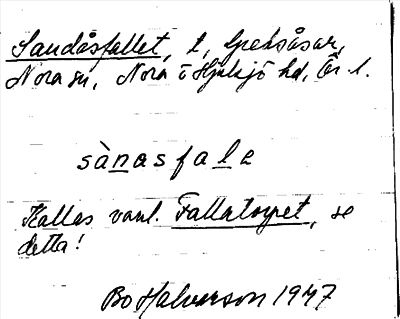 Sandåsfallet, t, Speksåsar,
Nora sn, Nora o Hjulsjö hd, Ör. l.
sànasfale
Kallas vanl. Fallatorpet, se
detta!
Bo Halvarson 1947